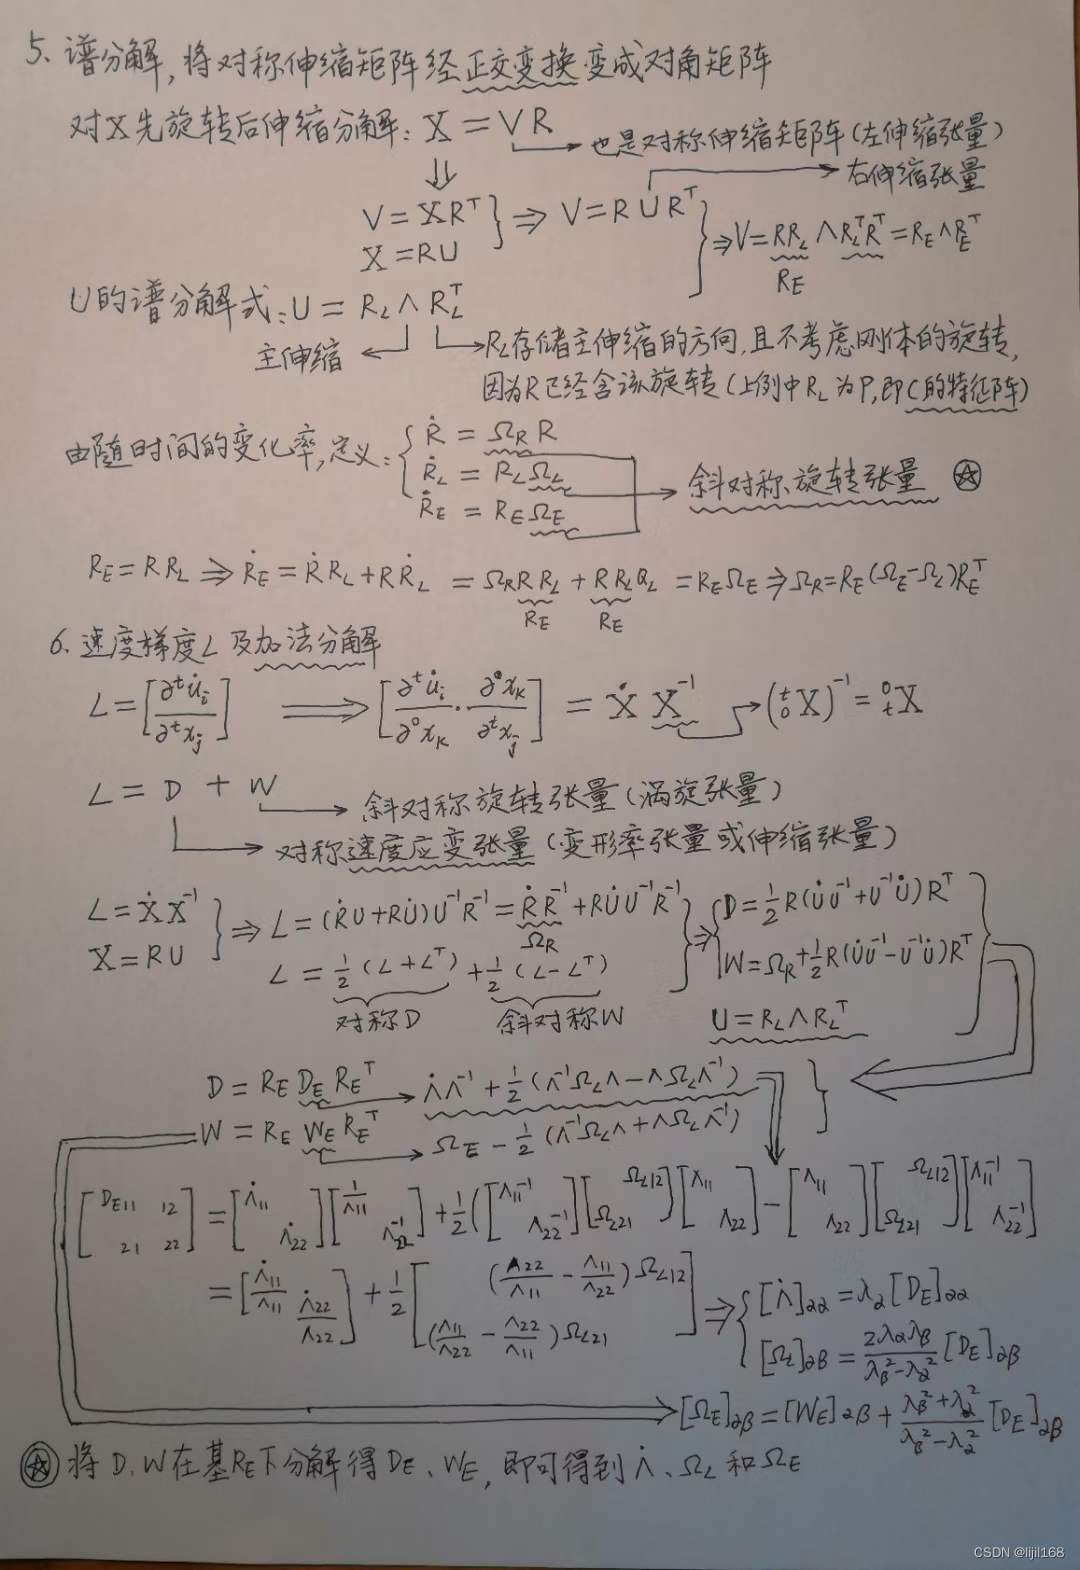 5. 谱分解，将对称伸缩矩阵经正交变换变成对角矩阵
对X先旋转后伸缩分解：X = VR
也是对称伸缩矩阵（左伸缩张量）
右伸缩张量
V = XRᵀ
X = RU
⇒ V = RURᵀ
⇒ V = RR_L Λ R_LᵀRᵀ = R_E Λ R_Eᵀ
R_E
U的谱分解式：U = R_L Λ R_Lᵀ
主伸缩
R_L存储主伸缩的方向，且不考虑刚体的旋转，
因为R已经含该旋转（上例中R_L为P，即C的特征阵）
由随时间的变化率，定义：
Ṙ = Ω_R R
Ṙ_L = R_L Ω_L
Ṙ_E = R_E Ω_E
斜对称旋转张量 ☆
R_E = RR_L ⇒ Ṙ_E = ṘR_L + RṘ_L = Ω_R RR_L + RR_L Ω_L = R_E Ω_E ⇒ Ω_R = R_E(Ω_E - Ω_L)R_Eᵀ
R_E R_E
6. 速度梯度L及加法分解
L = [∂ᵗu̇ᵢ/∂ᵗxⱼ] ⟹ [∂ᵗu̇ᵢ/∂⁰x_k · ∂⁰x_k/∂ᵗxⱼ] = Ẋ X⁻¹ → (ᵗ₀X)⁻¹ = ⁰ₜX
L = D + W
斜对称旋转张量（涡旋张量）
对称速度应变张量（变形率张量或伸缩张量）
L = ẊX⁻¹
X = RU
⇒ L = (ṘU + RU̇)U⁻¹R⁻¹ = ṘR⁻¹ + RU̇U⁻¹R⁻¹
Ω_R
L = 1/2(L + Lᵀ) + 1/2(L - Lᵀ)
对称D 斜对称W
⇒ D = 1/2 R(U̇U⁻¹ + U⁻¹U̇)Rᵀ
W = Ω_R + 1/2 R(U̇U⁻¹ - U⁻¹U̇)Rᵀ
U = R_L Λ R_Lᵀ
D = R_E D_E R_Eᵀ → Λ̇Λ⁻¹ + 1/2(Λ⁻¹Ω_LΛ - ΛΩ_LΛ⁻¹)
W = R_E W_E R_Eᵀ → Ω_E - 1/2(Λ⁻¹Ω_LΛ + ΛΩ_LΛ⁻¹)
[D_E11 12; 21 22] = [Λ̇11; Λ̇22][1/Λ11; Λ22⁻¹] + 1/2([Λ11⁻¹; Λ22⁻¹][Ω_L12; Ω_L21][Λ11; Λ22] - [Λ11; Λ22][Ω_L12; Ω_L21][Λ11⁻¹; Λ22⁻¹]
= [Λ̇11/Λ11; Λ̇22/Λ22] + 1/2[(Λ22/Λ11 - Λ11/Λ22)Ω_L12; (Λ11/Λ22 - Λ22/Λ11)Ω_L21]
⇒ [Λ̇]αα = λα[D_E]αα
[Ω_L]αβ = 2λαλβ/(λβ² - λα²) [D_E]αβ
[Ω_E]αβ = [W_E]αβ + (λβ² + λα²)/(λβ² - λα²) [D_E]αβ
☆ 将D、W在基R_E下分解得D_E、W_E，即可得到Λ̇、Ω_L和Ω_E
CSDN @lijil168